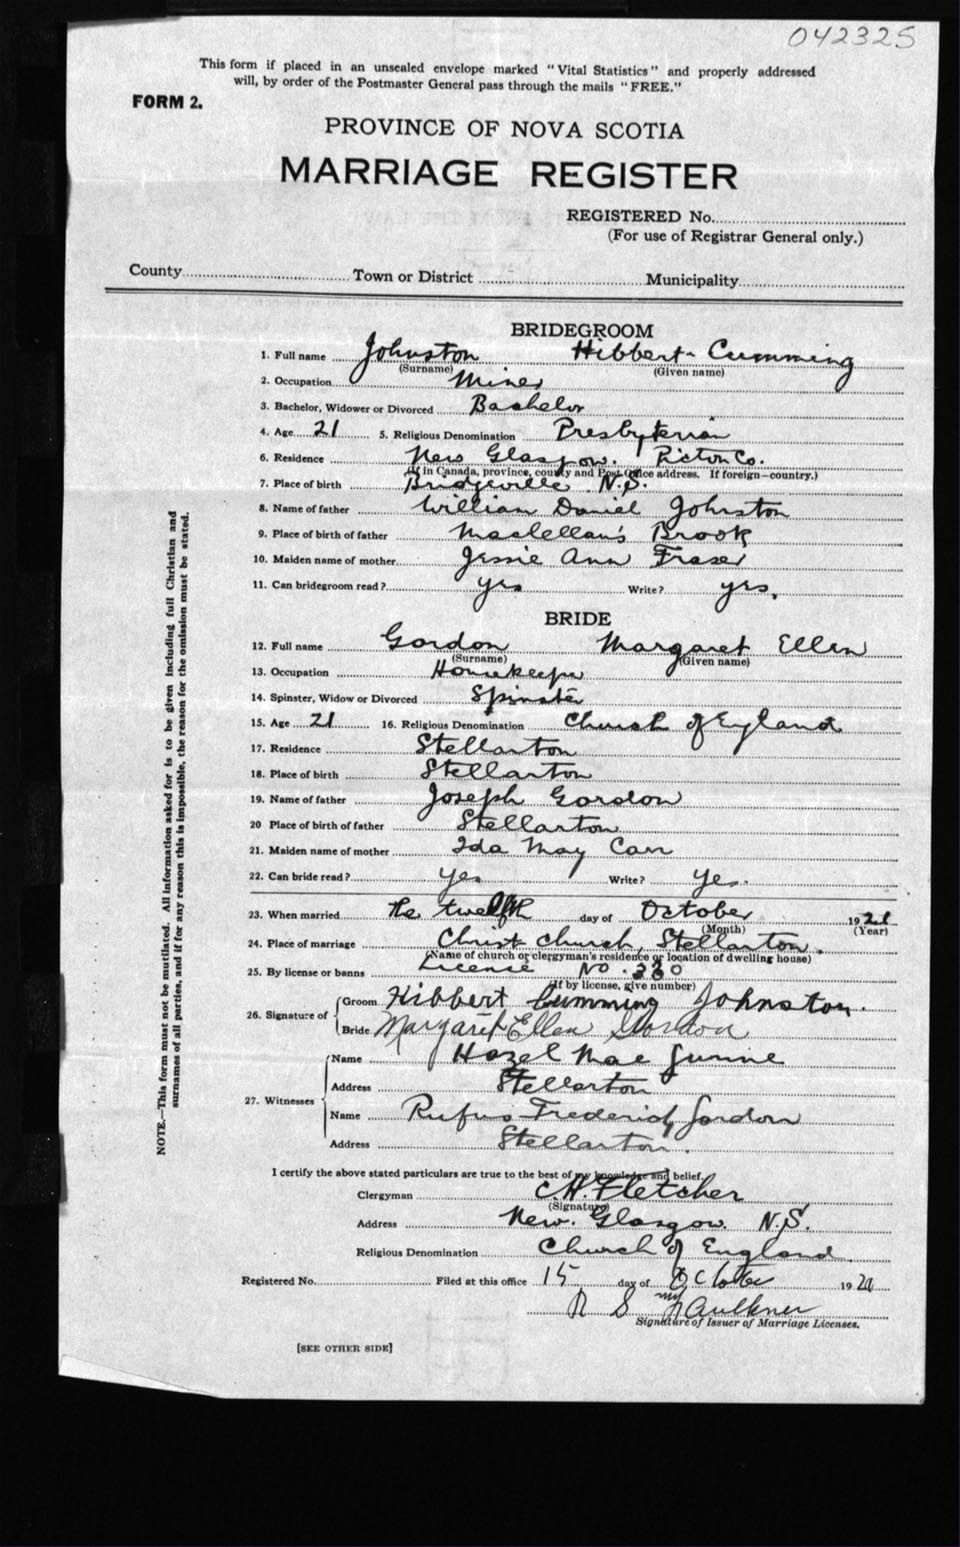 042325
This form if placed in an unsealed envelope marked "Vital Statistics" and properly addressed
will, by order of the Postmaster General pass through the mails "FREE."
FORM 2.
PROVINCE OF NOVA SCOTIA
MARRIAGE REGISTER
REGISTERED No.
(For use of Registrar General only.)
County Town or District Municipality
BRIDEGROOM
1. Full name Johnston Hibbert Cumming
(Surname) (Given name)
2. Occupation Miner
3. Bachelor, Widower or Divorced Bachelor
4. Age 21 5. Religious Denomination Presbyterian
6. Residence New Glasgow. Pictou Co.
(If in Canada, province, county and Post Office address. If foreign—country.)
7. Place of birth Bridgeville N.S.
8. Name of father William Daniel Johnston
9. Place of birth of father Maclellan's Brook
10. Maiden name of mother Jessie Ann Fraser
11. Can bridegroom read? yes Write? yes.
BRIDE
12. Full name Gordon Margaret Ellen
(Surname) (Given name)
13. Occupation Housekeeper
14. Spinster, Widow or Divorced Spinster
15. Age 21 16. Religious Denomination Church of England
17. Residence Stellarton
18. Place of birth Stellarton
19. Name of father Joseph Gordon
20 Place of birth of father Stellarton
21. Maiden name of mother Ida May Carr
22. Can bride read? yes Write? yes.
23. When married the twelfth day of October 19
(Month) (Year)
24. Place of marriage Christ Church, Stellarton.
(Name of church or clergyman's residence or location of dwelling house)
25. By license or banns License No.
(If by license, give number)
26. Signature of Groom Hibbert Cumming Johnston.
Bride Margaret Ellen Gordon
27. Witnesses Name Hazel Mae
Address Stellarton
Name Rufus Frederick Gordon
Address Stellarton.
I certify the above stated particulars are true to the best of my knowledge and belief.
Clergyman C.H. Fletcher
(Signature)
Address New Glasgow N.S.
Religious Denomination Church of England
Registered No. Filed at this office 15 day of October 19
Faulkner
Signature of Issuer of Marriage Licenses.
[SEE OTHER SIDE]
NOTE.—This form must not be mutilated. All information asked for is to be given including full Christian and
surnames of all parties, and if for any reason this is impossible, the reason for the omission must be stated.